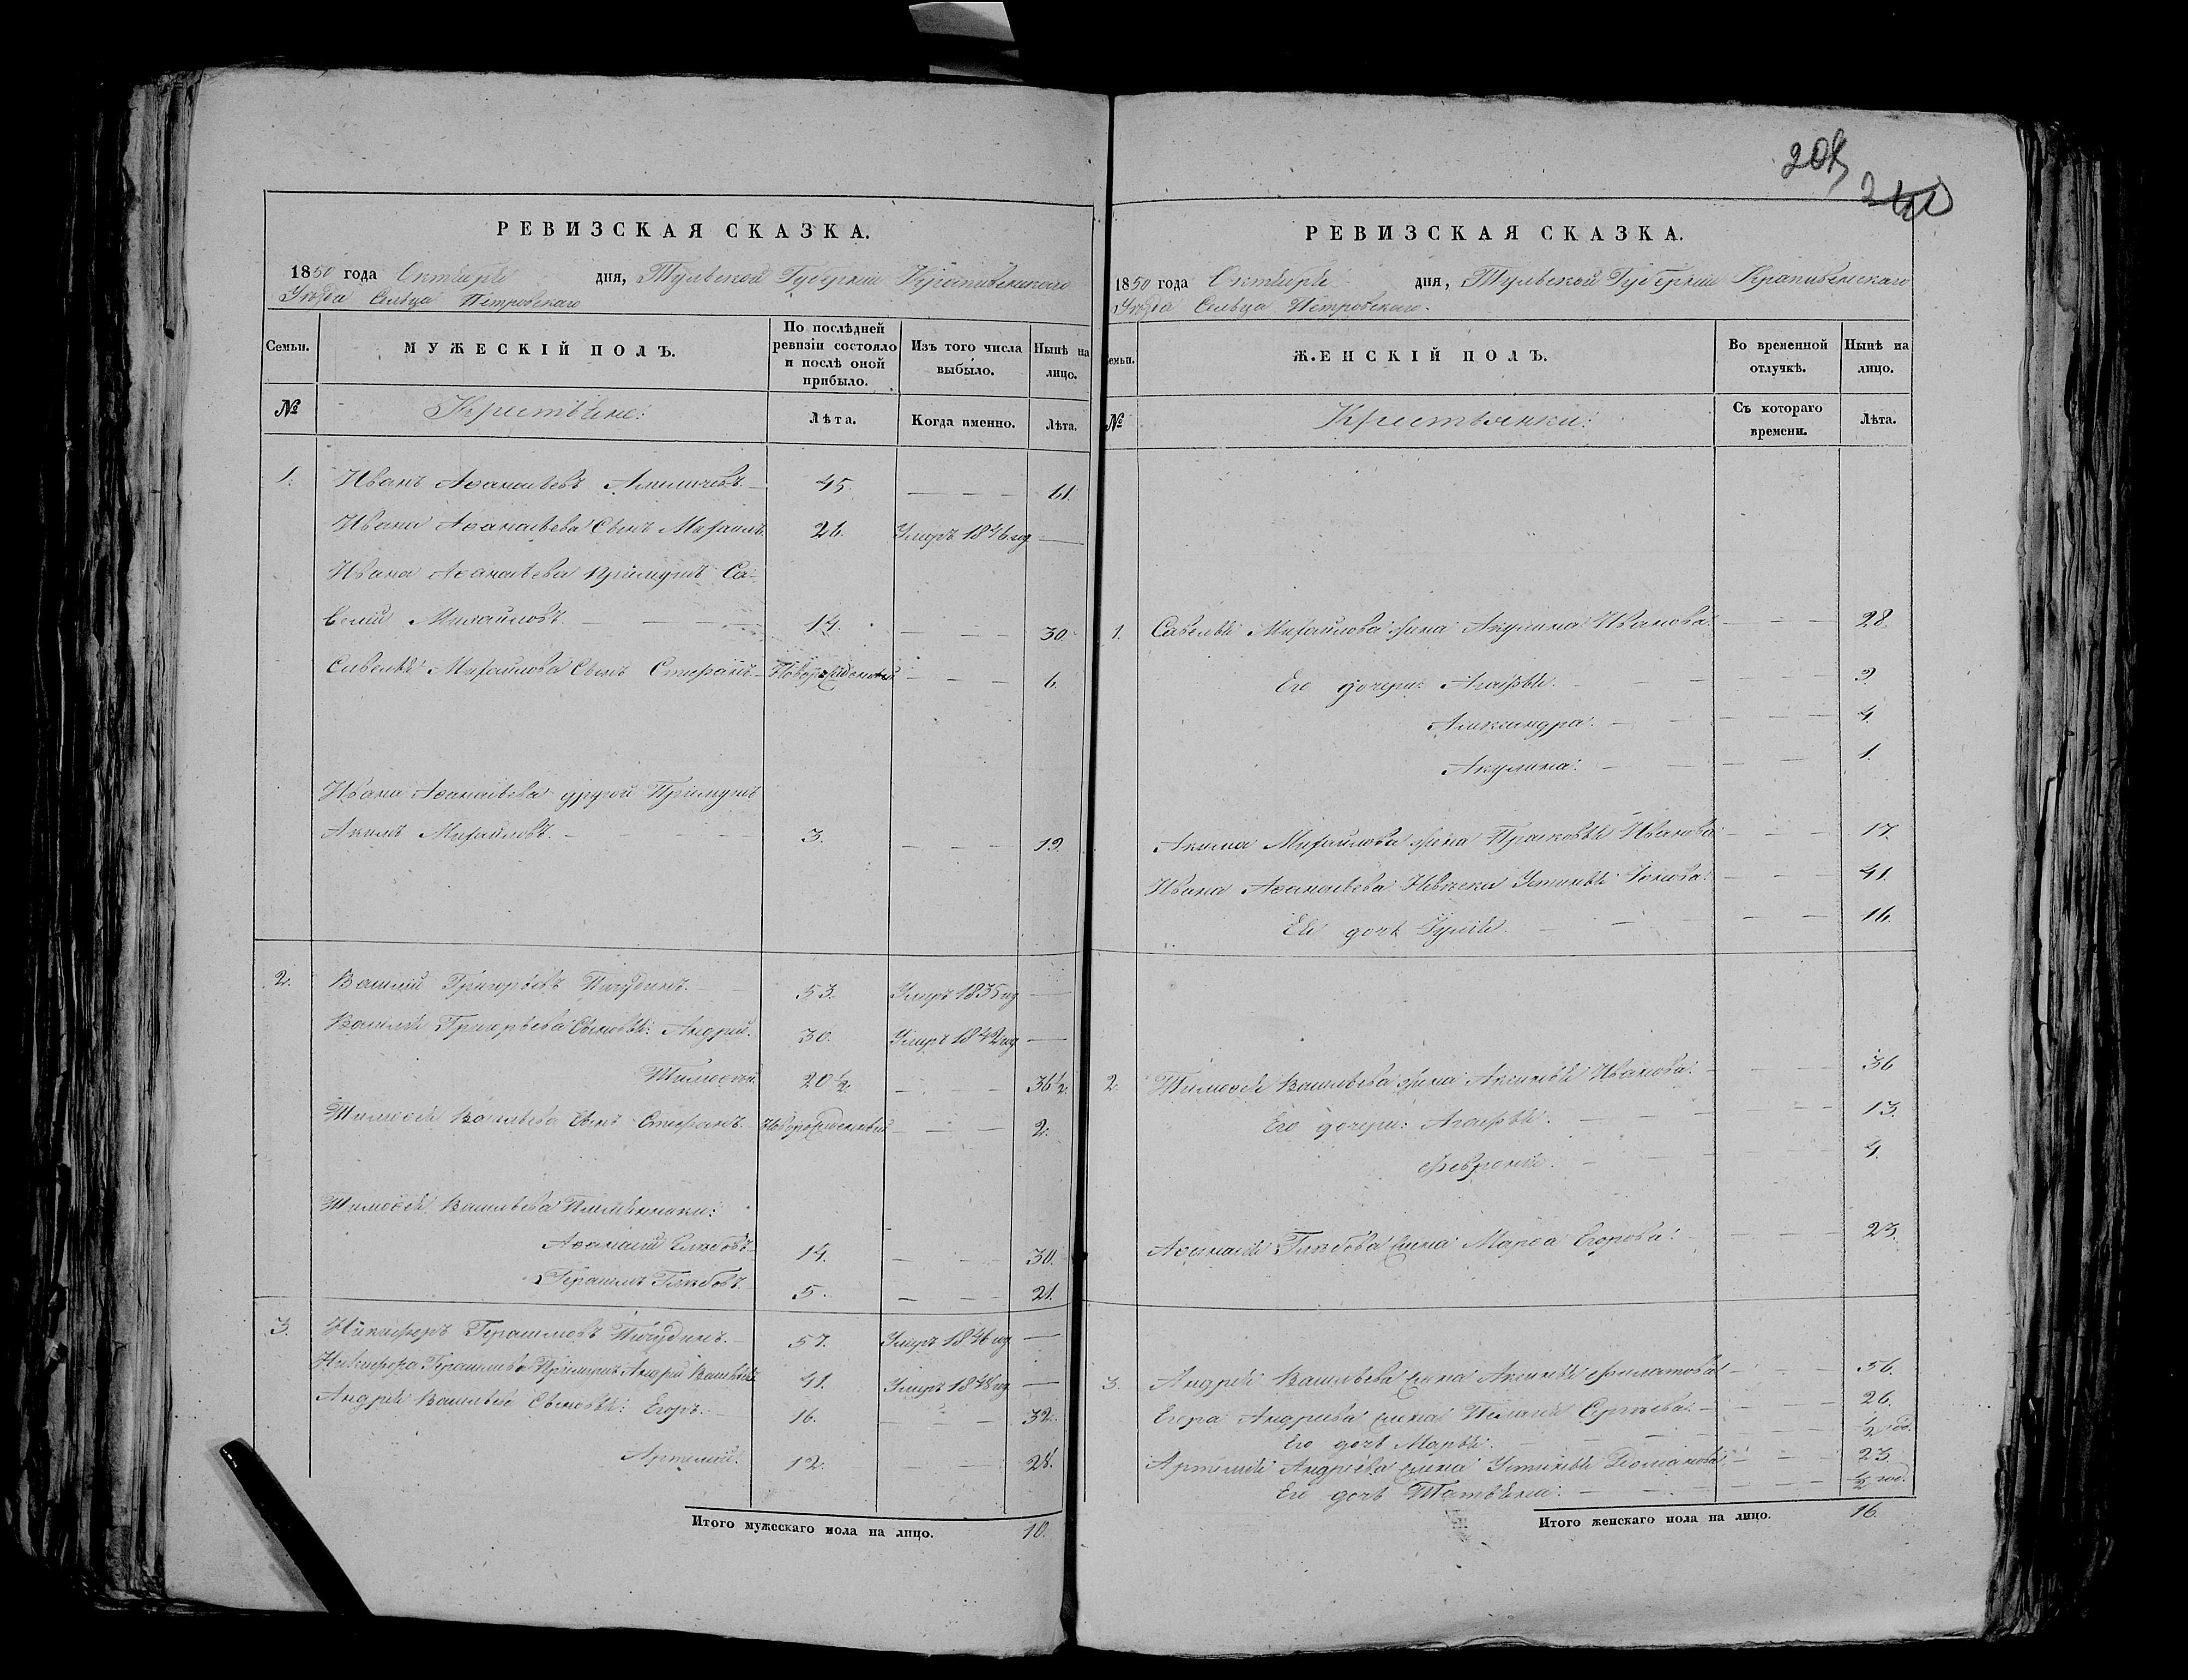 208
РЕВИЗСКАЯ СКАЗКА.
1850 года Октября дня, Тульской Губернии Крапивенскаго
Уѣзда Сельца Петровскаго
Семьи.
МУЖЕСКІЙ ПОЛЪ.
По послѣдней ревизіи состояло и послѣ оной прибыло.
Изъ того числа выбыло.
Нынѣ на лицо.
№
Крестьяне:
Лѣта.
Когда именно.
Лѣта.
1. Иванъ Аѳанасьевъ 45. — — — 61.
Ивана Аѳанасьева Сынъ Михаилъ 26. Умеръ 1846 год —
Ивана Аѳанасьева Пріемышъ Са-
велій Михайловъ. — — — 14. — — — 30.
Савелья Михайлова Сынъ Стефанъ — Новорожденный — — — 6.
Ивана Аѳанасьева другой Пріемышъ
Акимъ Михайловъ. — — — 3. — — — 19.
2. Василій Григорьевъ Пичугинъ. — 53. Умеръ 1835 год —
Василья Григорьева Сыновья: Андрей. 30. Умеръ 1842 год —
Тимоѳей. 20 ½. — — 36 ½.
Тимоѳея Васильева Сынъ Стефанъ. Новорожденный — — — 2.
Тимоѳея Васильева Племянники:
Аѳанасій Глебовъ 14. — — — 30.
Герасимъ Глѣбовъ. 5. — — — 21.
3. Никифоръ Герасимовъ Пичугинъ. — 57. Умеръ 1846 год —
Никифора Герасимова Пріемышъ Андрей Васильевъ 41. Умеръ 1848 год —
Андрея Васильева Сыновья: Егоръ. — 16. — — — 32.
Артемій. 12. — — — 28.
Итого мужескаго пола на лицо. 10.
РЕВИЗСКАЯ СКАЗКА.
1850 года Октября дня, Тульской Губерніи Крапивенскаго
Уѣзда Сельца Петровскаго.
Семьи.
ЖЕНСКІЙ ПОЛЪ.
Во временной отлучкѣ.
Нынѣ на лицо.
№
Крестьянки:
Съ котораго времени.
Лѣта.
1. Савелья Михайлова жена Акулина Иванова. — — — 28.
Его дочери: Агафья. — — — 9.
Александра. — — — 4.
Акулина. — — — 1.
Акима Михайлова жена Прасковья Иванова — — — 17.
Ивана Аѳанасьева Невѣстка Устинья — — — 41.
Ея дочь — — — 16.
2. Тимоѳея Васильева жена Аксинья Иванова. — — — 36
Его дочери: Агафья. — — — 13.
Февронія. — — — 4.
Аѳанасія Глѣбова жена Марѳа Егорова. — — — 23.
3. Андрея Васильева жена Аксинья Филатова — — — 56.
Егора Андреева жена Пелагея Сергѣева. — — — 26.
Его дочь Марья. — — — ½ год.
Артемія Андреева жена Устинья — — — 23.
Его дочь Татьяна. — — — ½ год.
Итого женскаго пола на лицо. 16.